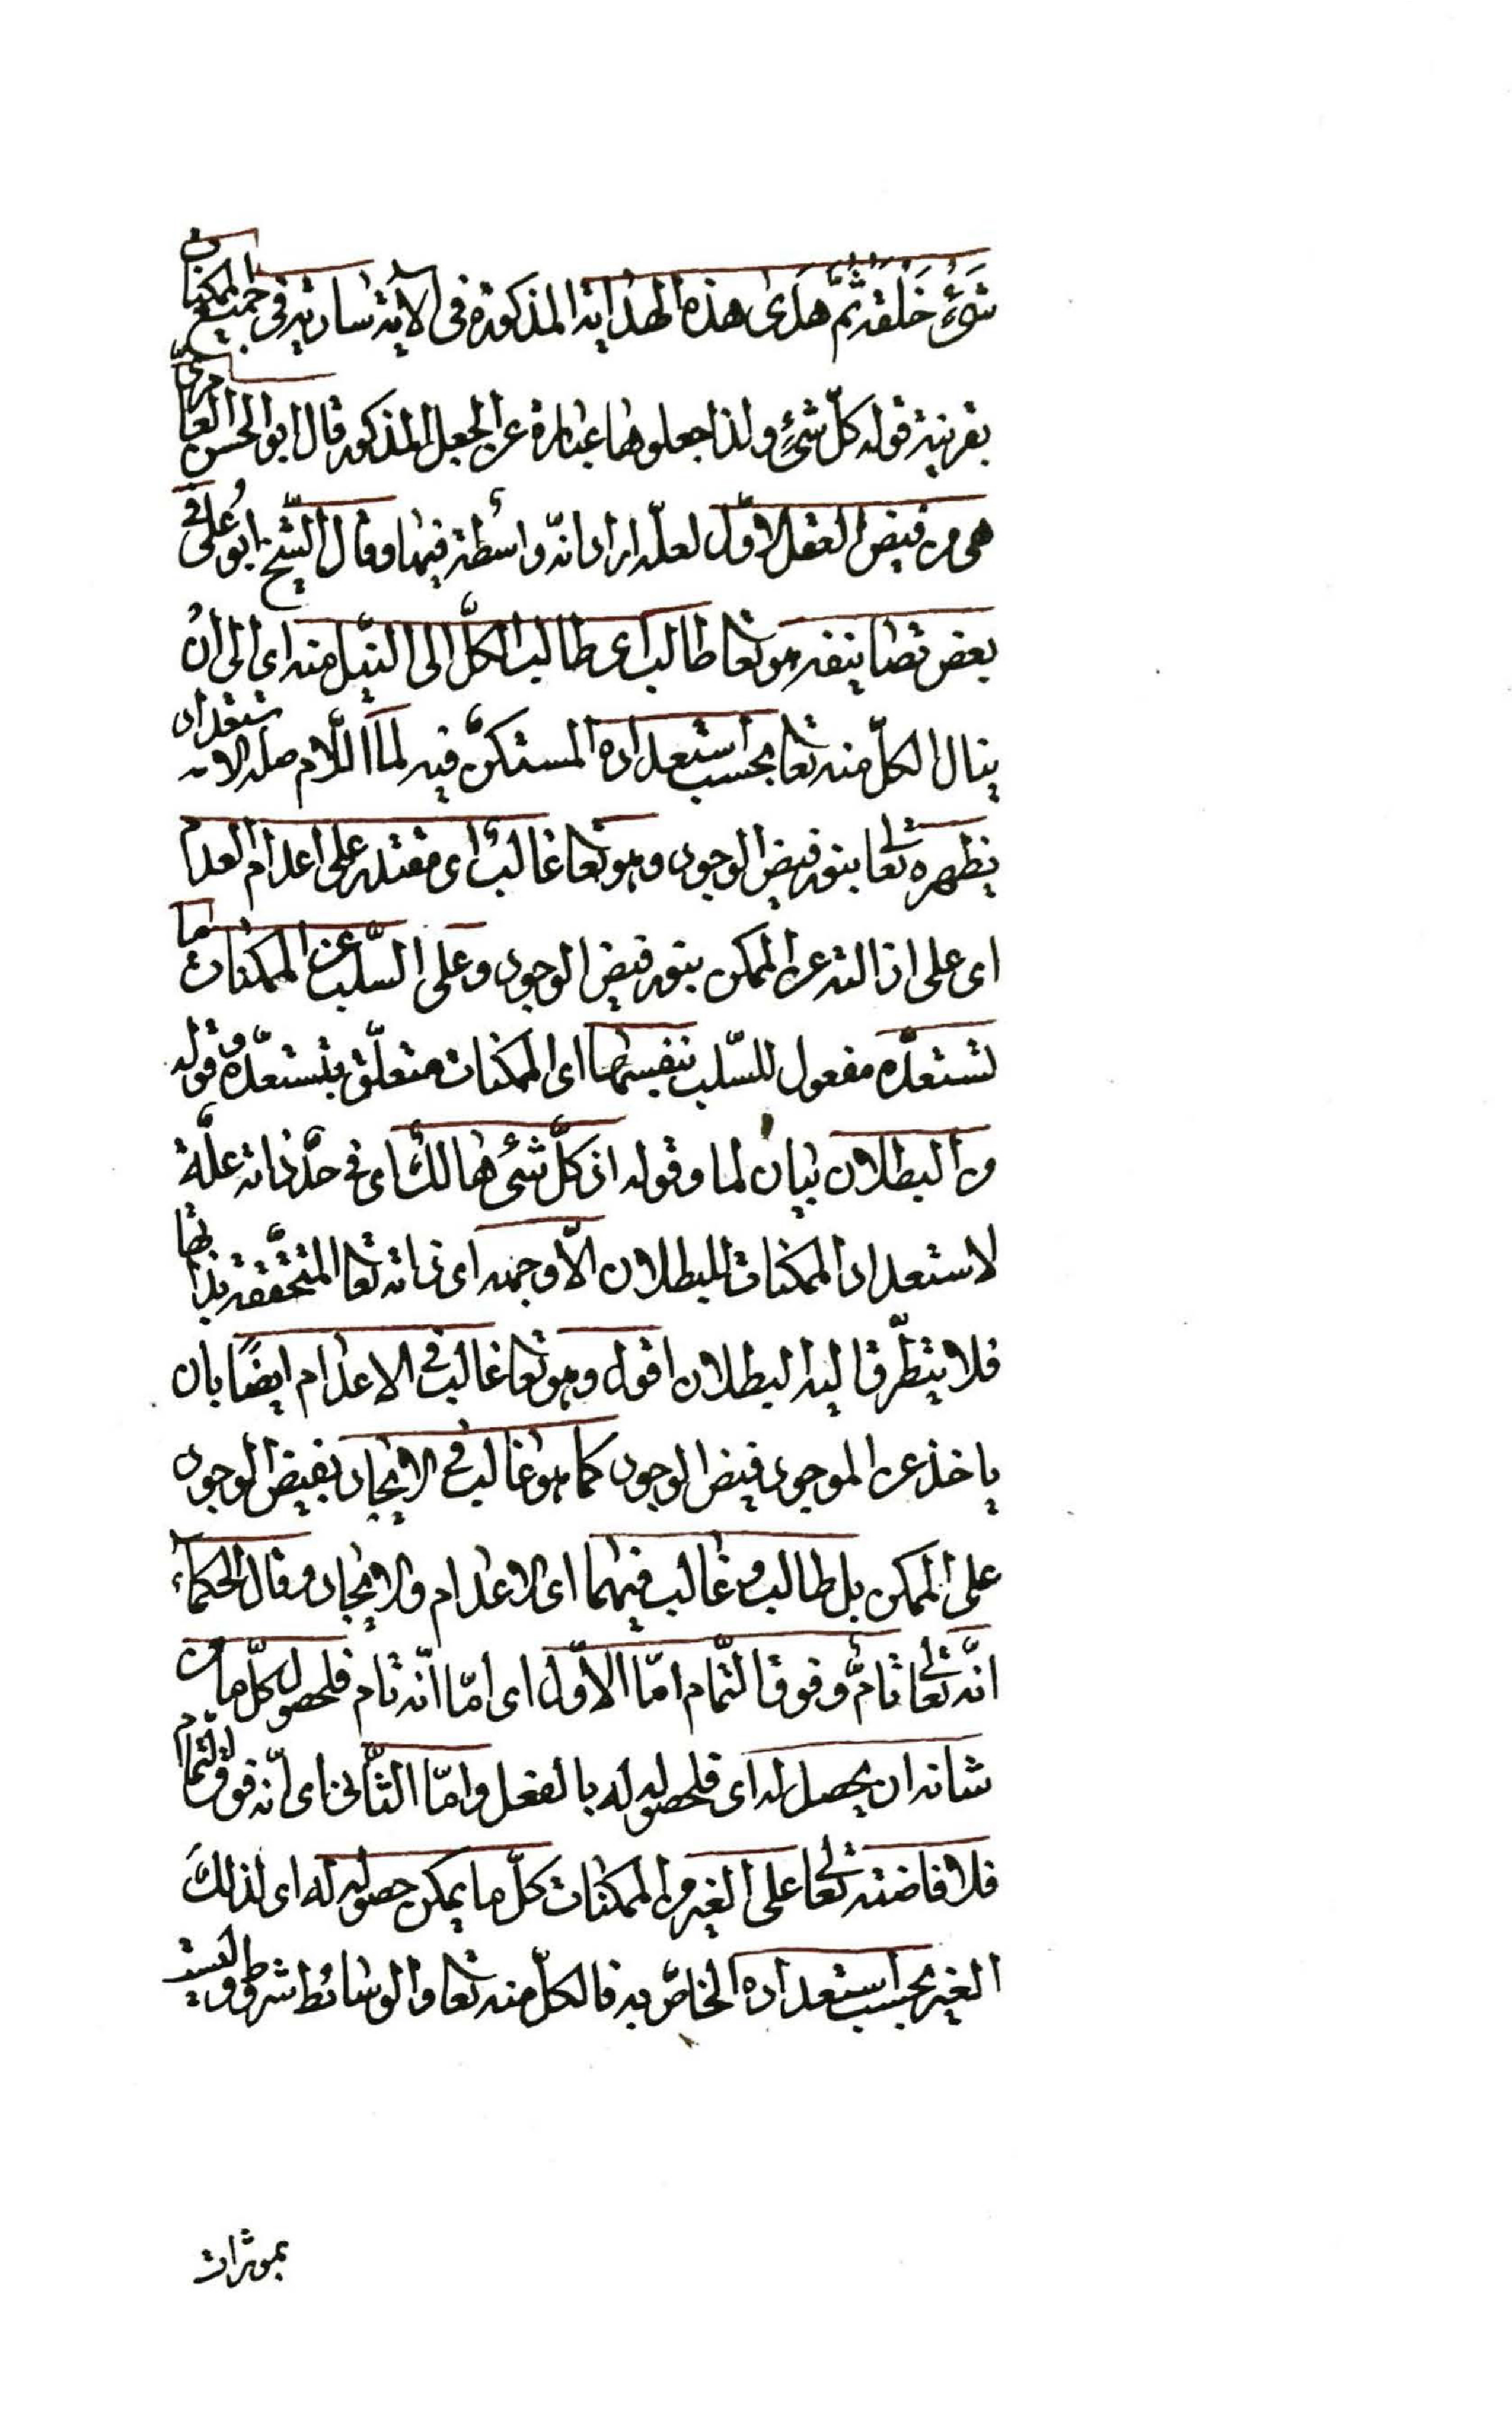 شَيْءٍ خَلْقَهُ ثُمَّ هَدَى هذه الهداية المذكورة فى الآية سارية فى جميع الممكنات
بقرينة قوله كلّ شئ ولذا جعلوها عبارة عن الجعل المذكور قال ابو الحسن العامرىّ
هى من فيض العقل الاوّل لعلّه اراد انّه واسطة فيها وقال الشّيخ ابو على فى
بعض تصانيفه هو تعا طالب اى طالب الكلّ الى النّيل منه اى الى ان
ينال الكلّ منه تعا بحسب استعداده المستكنّ فيه لما اللّام صلة الاستعداد
يظهره تعالى بنور فيض الوجود وهو تعا غالب اى مقتدر على اعدام العدم
اى على ازالته عن الممكن بنور فيض الوجود وعلى السّلب عن الممكنات ما
تستعدّه مفعول للسّلب بنفسها اى الممكنات متعلّق بتستعدّه وقوله
من البطلان بيان لما وقوله اذ كلّ شئ هالك اى فى حدّ ذاته علّة
لاستعداد الممكنات للبطلان الّا وجهه اى ذاته تعا المتحقّقة بذاتها
فلا يتطرّق اليه البطلان اقول وهو تعا غالب فى الاعدام ايضًا بان
ياخذ عن الموجود فيض الوجود كما هو غالب فى الايجاد بفيض الوجود
على الممكن بل طالب وغالب فيهما اى الاعدام والايجاد وقال الحكماء
انّه تعالى تامّ وفوق التّمام امّا الاوّل اى امّا انّه تام فلحصول كلّ ما من
شانه ان يحصل له اى فلحصوله له بالفعل وامّا الثّانى اى انّه فوق التّمام
فلافاضته تعالى على الغير من الممكنات كلّ ما يمكن حصوله له اى لذلك
الغير بحسب استعداده الخاصّ به فالكلّ منه تعا والوسائط شروط وليست
بمؤثرات